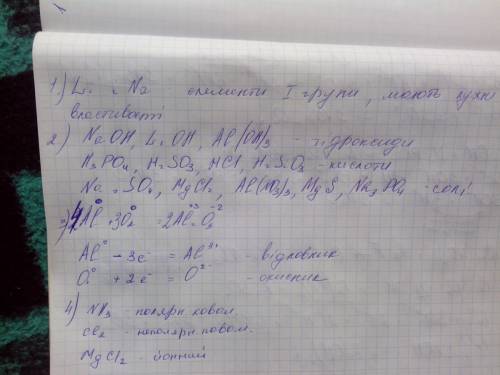 1) Li і Na елементи I групи, мають схожі
властивості
2) NaOH, LiOH, Al(OH)3 - гідроксиди
H3PO4, H2SO3, HCl, H2SiO3 - кислоти
Na2SO4, MgCl2, Al(NO3)3, MgS, Na3PO4 - солі
3) 4Al⁰ + 3O2⁰ = 2Al2⁺³O3⁻²
Al⁰ - 3e⁻ = Al³⁺ - відновник
O⁰ + 2e⁻ = O²⁻ - окисник
4) NH3 - полярн ковал.
Cl2 - неполярн ковал.
MgCl2 - йонний